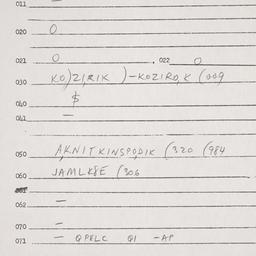 011 —
020 O
021 O . 022 O
030 KO)ZIRIK )-KOZIRO,K (009
040 $
041 —
050 A,KNITKINSPO,DIK (320 (984
060 JAMLK8E (306
061
062 —
070 —
071 — QPELC QI -AP